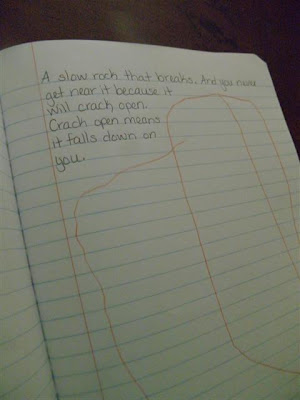 A slow rock that breaks. And you never
get near it because it
will crack open.
Crack open means
it falls down on
you.